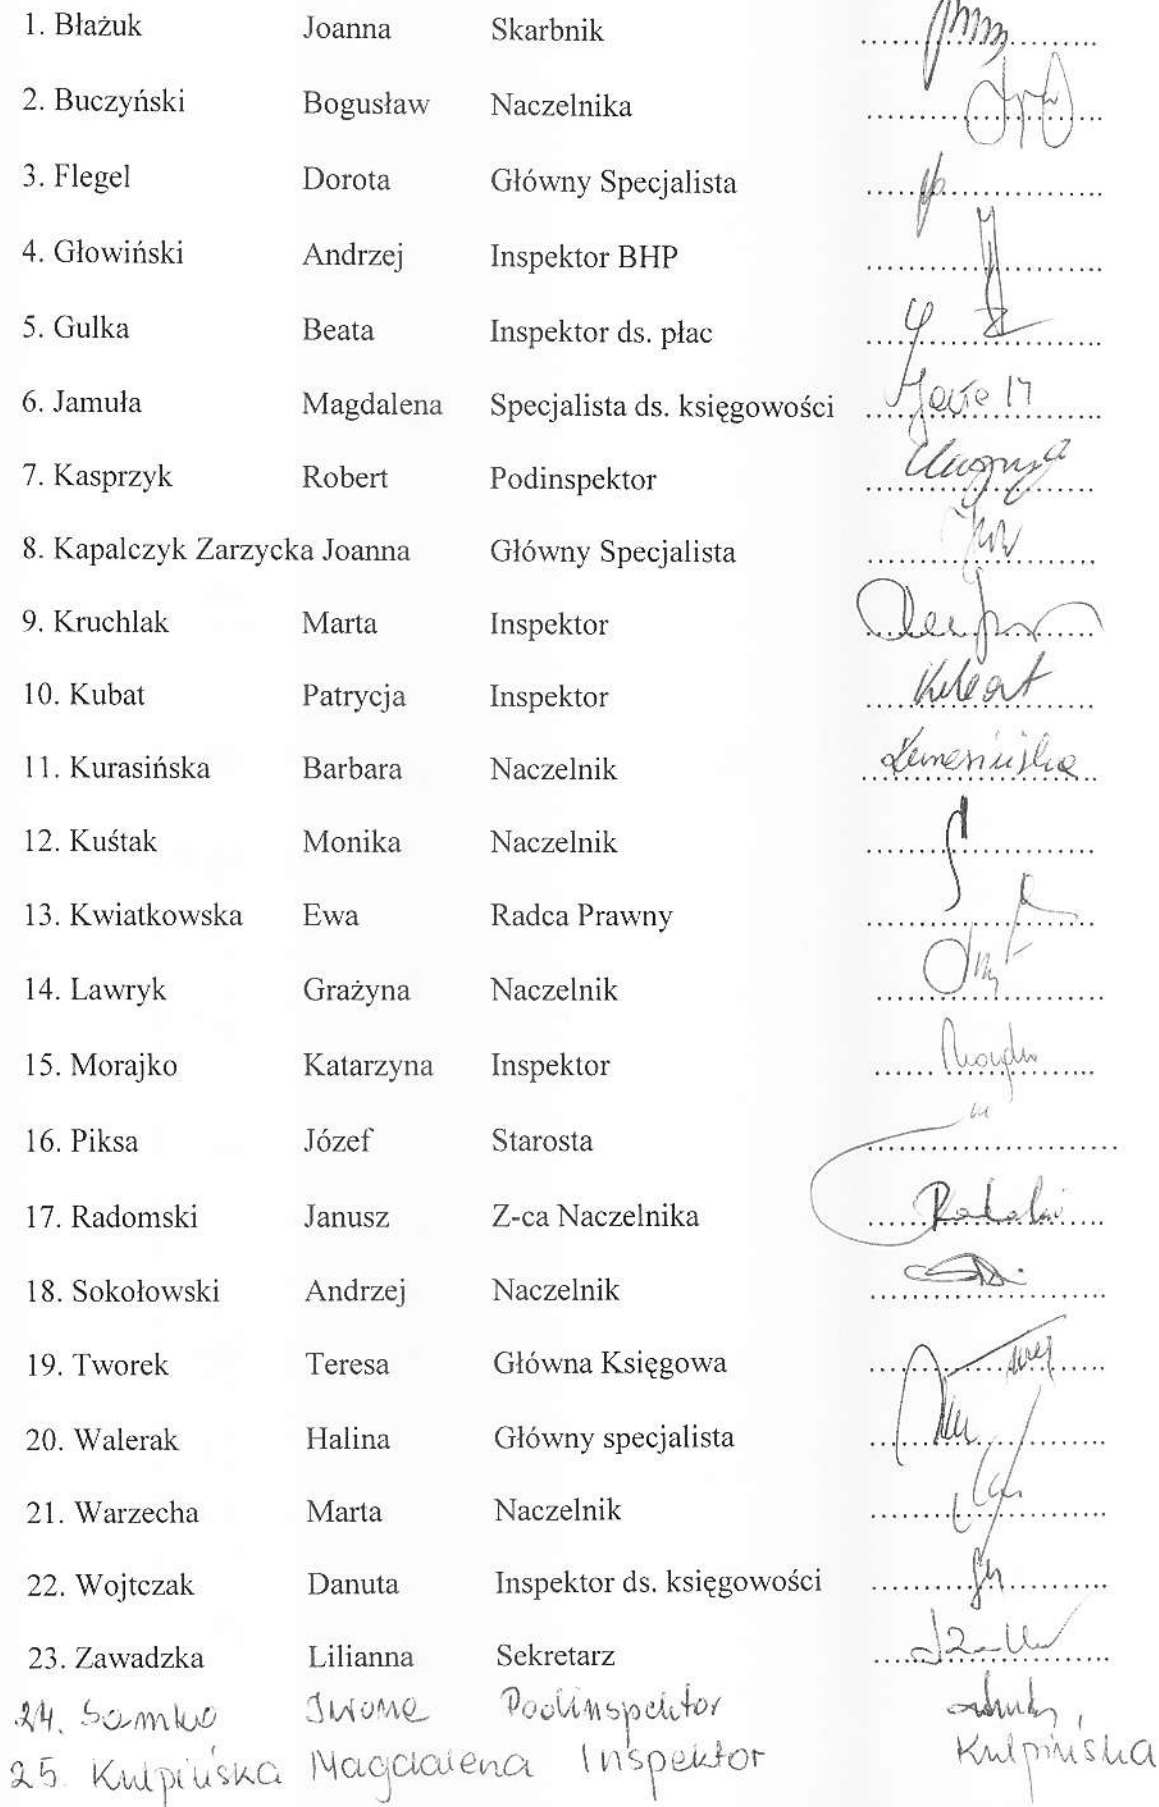 1. Błażuk Joanna Skarbnik ..............................
2. Buczyński Bogusław Naczelnika ..............................
3. Flegel Dorota Główny Specjalista ..............................
4. Głowiński Andrzej Inspektor BHP ..............................
5. Gulka Beata Inspektor ds. płac ..............................
6. Jamuła Magdalena Specjalista ds. księgowości ..............................
7. Kasprzyk Robert Podinspektor ..............................
8. Kapalczyk Zarzycka Joanna Główny Specjalista ..............................
9. Kruchlak Marta Inspektor ..............................
10. Kubat Patrycja Inspektor Kubat
11. Kurasińska Barbara Naczelnik Kurasińska
12. Kuśtak Monika Naczelnik ..............................
13. Kwiatkowska Ewa Radca Prawny ..............................
14. Lawryk Grażyna Naczelnik ..............................
15. Morajko Katarzyna Inspektor ..............................
16. Piksa Józef Starosta ..............................
17. Radomski Janusz Z-ca Naczelnika ..............................
18. Sokołowski Andrzej Naczelnik ..............................
19. Tworek Teresa Główna Księgowa ..............................
20. Walerak Halina Główny specjalista ..............................
21. Warzecha Marta Naczelnik ..............................
22. Wojtczak Danuta Inspektor ds. księgowości ..............................
23. Zawadzka Lilianna Sekretarz ..............................
24. Samko Iwona Podinspektor
25. Kulpińska Magdalena Inspektor Kulpińska